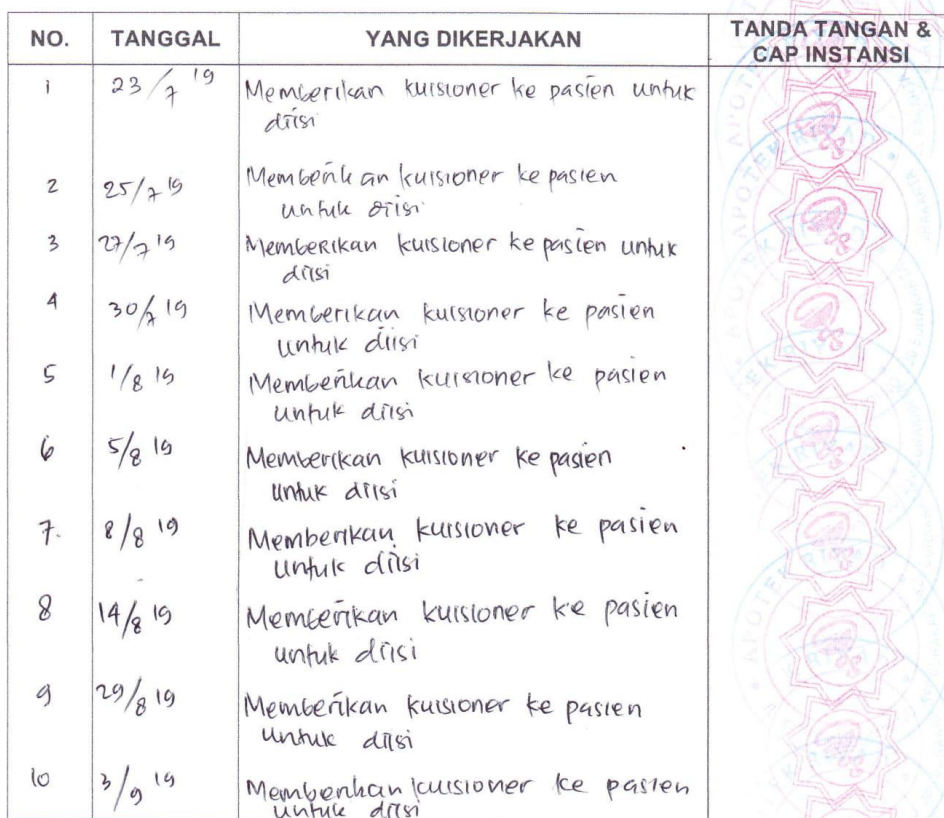 NO. TANGGAL YANG DIKERJAKAN TANDA TANGAN &
CAP INSTANSI
1 23/7 19 Memberikan kuisioner ke pasien untuk
diisi
2 25/7 19 Memberikan kuisioner ke pasien
untuk diisi
3 27/7 19 Memberikan kuisioner ke pasien untuk
diisi
4 30/7 19 Memberikan kuisioner ke pasien
untuk diisi
5 1/8 19 Memberikan kuisioner ke pasien
untuk diisi
6 5/8 19 Memberikan kuisioner ke pasien
untuk diisi
7. 8/8 19 Memberikan kuisioner ke pasien
untuk diisi
8 14/8 19 Memberikan kuisioner ke pasien
untuk diisi
9 29/8 19 Memberikan kuisioner ke pasien
untuk diisi
10 3/9 19 Memberikan kuisioner ke pasien
untuk diisi
APOTEK